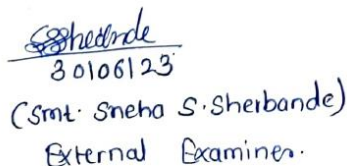 30/06/23
(Smt. Sneha S. Sherbande)
External Examiner.